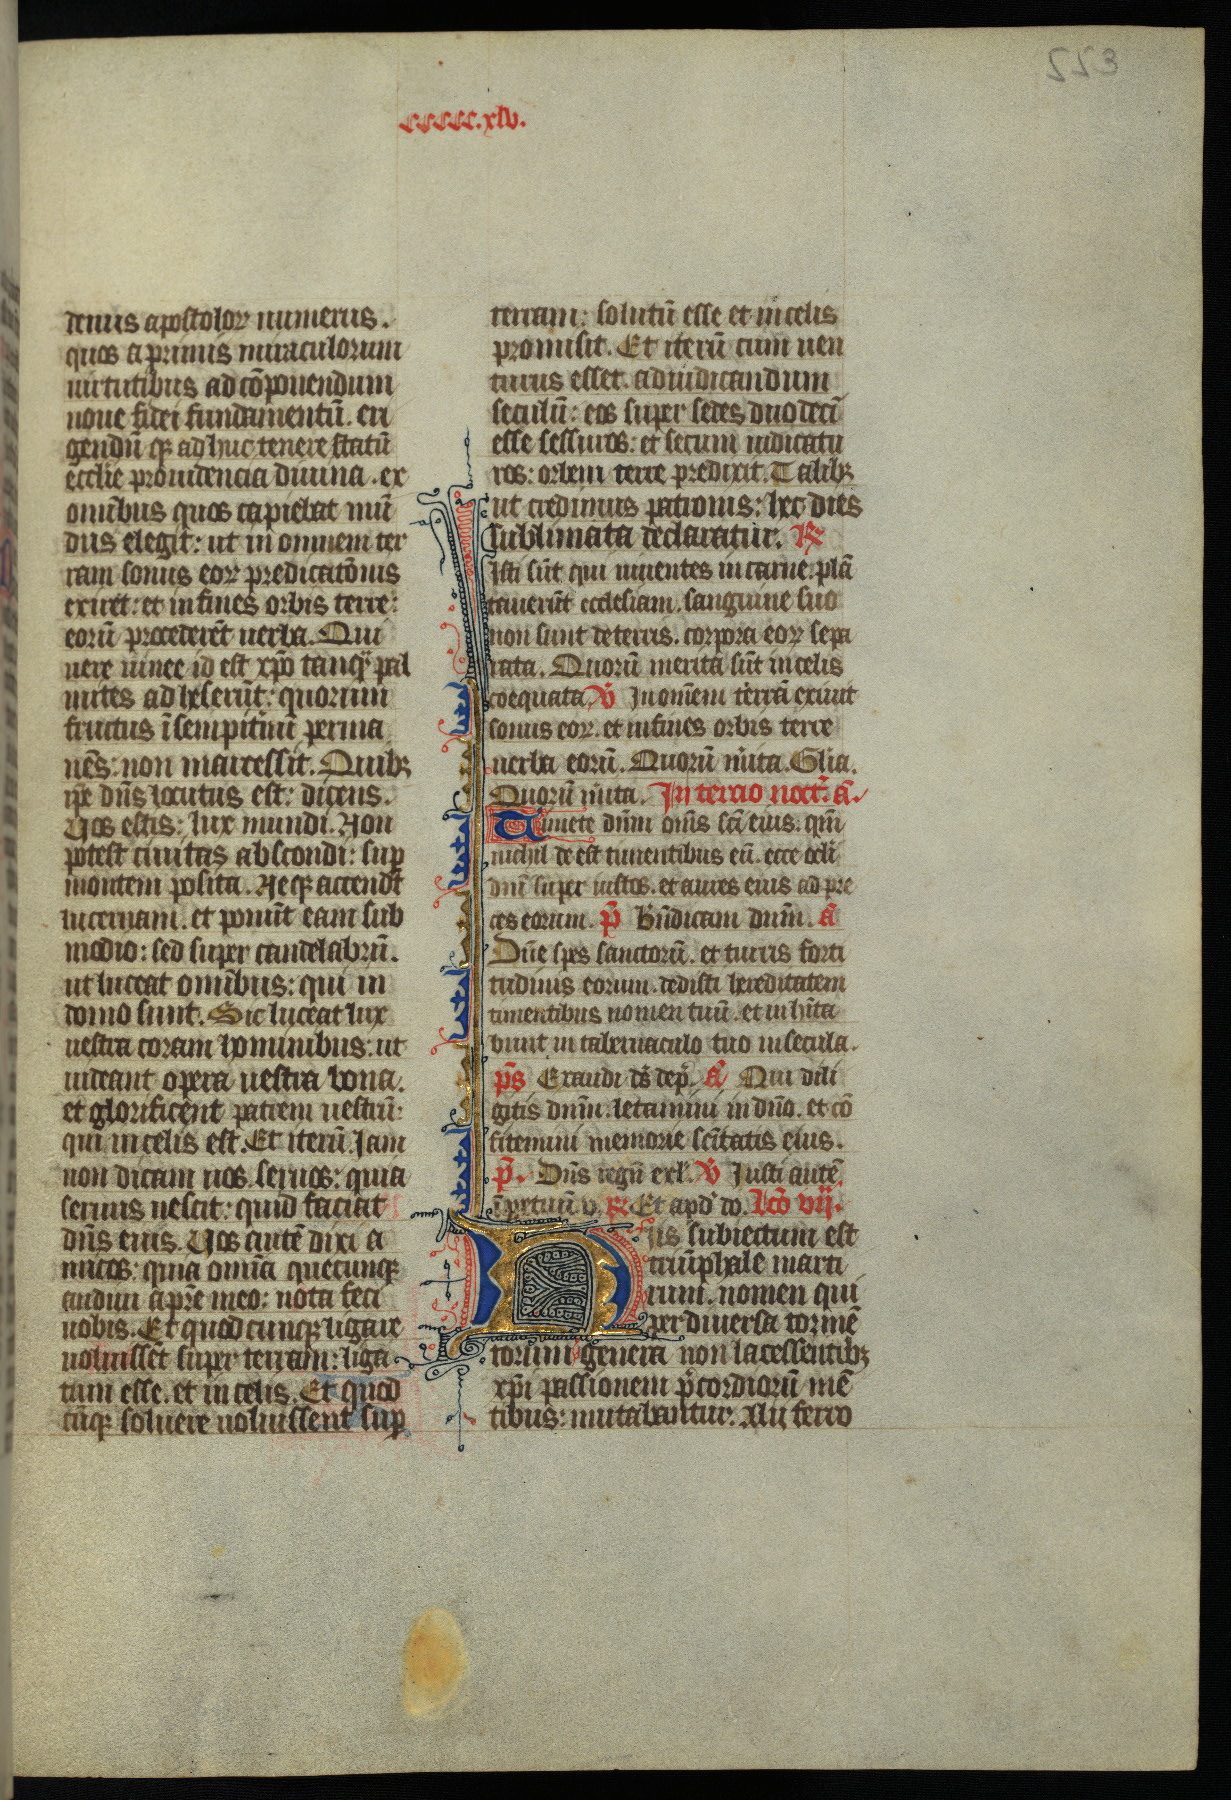 223
ccccc.xlv.
denus apostoloꝝ numerus.
quos a primis miraculorum
uirtutibus ad cōponendum
noue fidei fundamentū. eri
gendū qꝫ ad huc tenere statū
ecclie prouidencia diuina. ex
omībus quos capiebat mū
dus elegit: ut in omnem ter
ram sonus eoꝝ predicatōnis
exiret: et in fines orbis terre:
eorū procederēt uerba. Qui
uere uinee id est xp̄o tanqᷓ pal
mites ad heserūt: quorum
fructus ī sempitnū perma
nēs: non marcessit. Quibꝫ
ip̄e dn̄s locutus est: dicens.
Uos estis: lux mundi. Non
potest ciuitas abscondi: suꝑ
montem posita. Neqꝫ accendūt
lucernam. et ponūt eam sub
modio: sed super candelabrū.
ut luceat omībus: qui in
domo sunt. Sic luceat lux
uestra coram hominibus: ut
uideant opera uestra bona.
et glorificent patrem uestrū:
qui in celis est. Et iterū. Jam
non dicam uos seruos: quia
seruus nescit: quid faciat
dn̄s eius. Uos autē dixi a
micos: quia omīa quecunqꝫ
audiui a pr̄e meo: nota feci
uobis. Et quodcunqꝫ ligare
uoluissēt super terram: liga
tum esse. et in celis. Et quod
cūqꝫ soluere uoluissent suꝑ
terram: solutū esse et in celis
promisit. Et iterū cum uen
turus esset. ad iudicandum
seculū: eos super sedes duodecī
esse sessuros: et secum iudicatu
ros: orbem terre predixit. Talibꝫ
ut credimus patronis: hec dies
sublimata declaratur. ℞
Isti sūt qui uiuentes in carne. plā
tauerūt ecclesiam. sanguine suo
non sunt de terris. corpora eoꝝ sepa
rata. Quorū merita sūt in celis
coequata. ℣ In omēm terrā exiuit
sonus eoꝝ. et in fines orbis terre
uerba eorū. Quorū m̄ita. Gl̄ia.
Quorū m̄ita. In tercio noct̄. ā.
Timete dn̄m om̄s scī eius: qm̄
nichil de est timentibus eū. ecce oc̄li
dn̄i super iustos. et aures eius ad pre
ces eorum. p̄ Bn̄dicam dnm̄. ā
Dn̄e spes sanctorū. et turris forti
tudinis eorum. dedisti hereditatem
timentibus nomen tuū. et in hīta
bunt in tabernaculo tuo in secula.
ps̄ Exaudi ds̄ dep̄. ā Qui dili
gitis dnm̄. letamini in dn̄o. et cō
fitemini memorie scītatis eius.
p̄. Dn̄s regū exl̄. ℣ Justi autē
ī ꝑpetuū v. ℞ Et apd̄ do. Lc̄o vij.
Hijs subiectum est
triūphale marti
rum. nomen qui
per diuersa tormē
torum genera non lacessentibꝫ
xp̄i passionem p̄cordiorū mē
tibus: mutabantur. Alii ferro